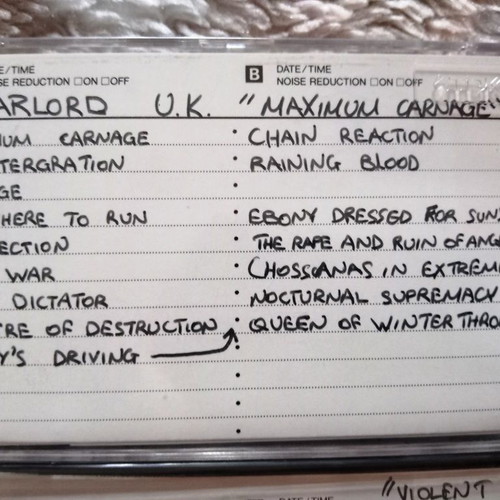 E/TIME B DATE/TIME
ISE REDUCTION ☐ON ☐OFF NOISE REDUCTION ☐ON ☐OFF
ARLORD U.K. "MAXIMUM CARNAGE"
UM CARNAGE • CHAIN REACTION
TERGRATION • RAINING BLOOD
GE •
HERE TO RUN • EBONY DRESSED FOR SUN
ECTION • THE RAPE AND RUIN OF ANG
WAR • CHOSSANAS IN EXTREM
DICTATOR • NOCTURNAL SUPREMACY
'RE OF DESTRUCTION • QUEEN OF WINTER THRO
Y'S DRIVING
"VIOLENT